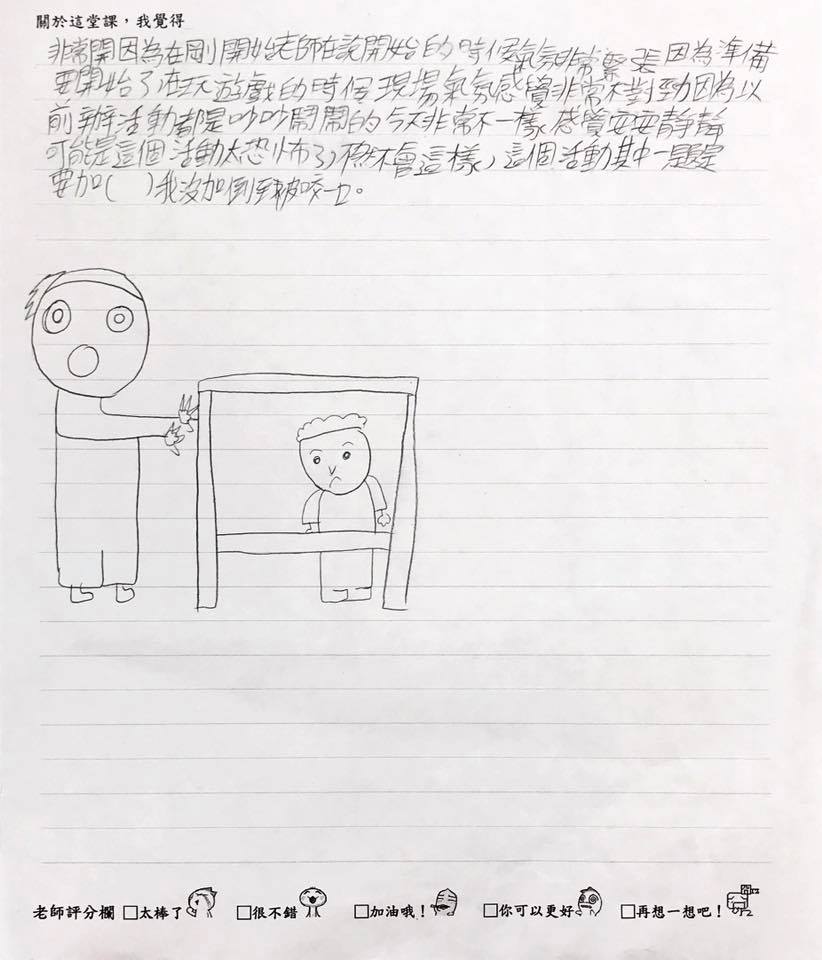 關於這堂課，我覺得
非常開因為在剛開始老師在說開始的時候氣氛非常緊張因為準備
要開始了在玩遊戲的時候現場氣氛感覺非常不對勁因為以
前辦活動都是吵吵鬧鬧的今天非常不一樣感覺安安靜靜
可能是這個活動太恐怖了,不然不會這樣,這個活動其中一題是
要加( )我沒加倒到被咬一口。
老師評分欄 □太棒了 □很不錯 □加油哦！ □你可以更好 □再想一想吧！